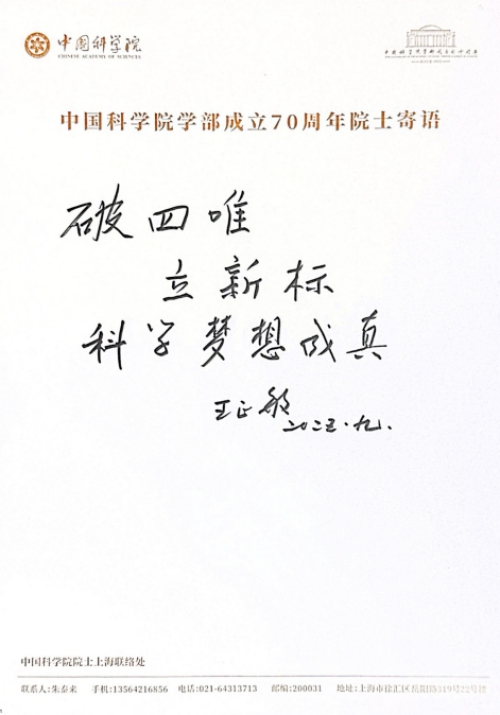 中国科学院
CHINESE ACADEMY OF SCIENCES
中国科学院学部成立70周年院士寄语
破四唯
立新标
科学梦想成真
王正敏
二〇二五·九.
中国科学院院士上海联络处
联系人:朱泰来 手机:13564216856 电话:021-64313713 邮编:200031 地址:上海市徐汇区岳阳路319号